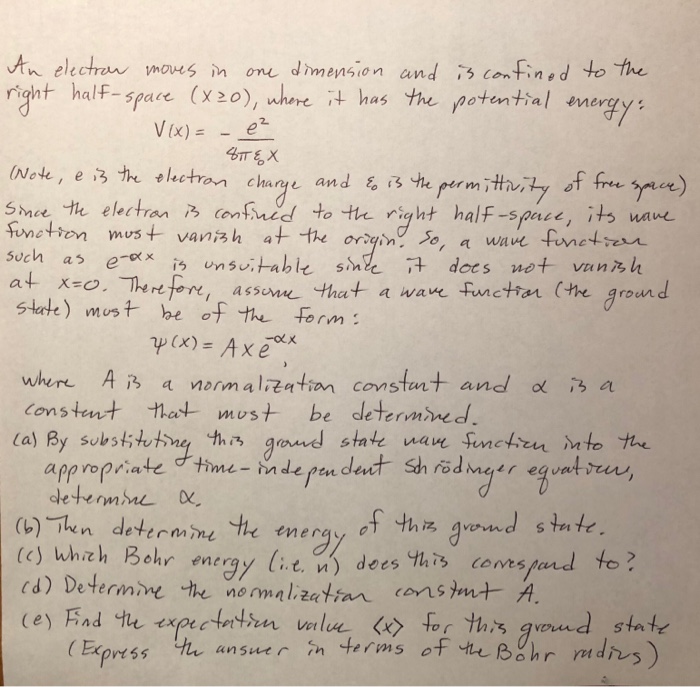 An electron moves in one dimension and is confined to the
right half-space (x≥0), where it has the potential energy:
V(x) = - e²
8πε₀x
(Note, e is the electron charge and ε₀ is the permittivity of free space)
Since the electron is confined to the right half-space, its wave
function must vanish at the origin. So, a wave function
such as e^-αx is unsuitable since it does not vanish
at x=0. Therefore, assume that a wave function (the ground
state) must be of the form:
ψ(x) = Axe^-αx,
where A is a normalization constant and α is a
constant that must be determined.
(a) By substituting this ground state wave function into the
appropriate time-independent Schrödinger equation,
determine α.
(b) Then determine the energy of this ground state.
(c) Which Bohr energy (i.e. n) does this correspond to?
(d) Determine the normalization constant A.
(e) Find the expectation value <x> for this ground state
(Express the answer in terms of the Bohr radius)